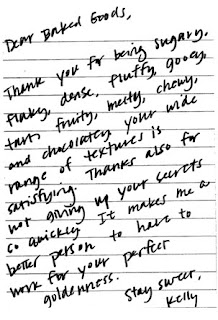 Dear Baked Goods,
Thank you for being sugary,
flaky, dense, fluffy, gooey,
tart, fruity, melty, chewy,
and chocolatey. Your wide
range of textures is
satisfying. Thanks also for
not giving up your secrets
so quickly. It makes me a
better person to have to
work for your perfect
goldenness.
Stay sweet,
Kelly